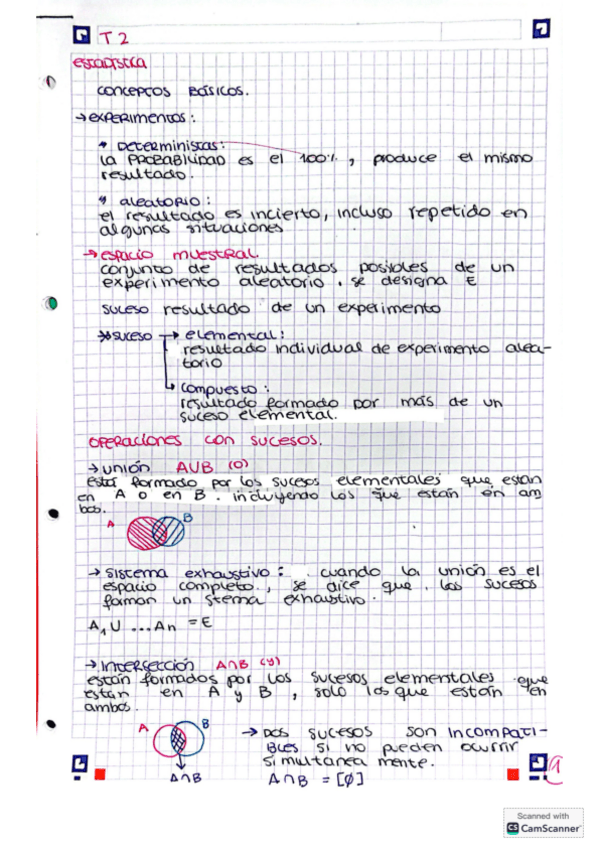 T2
ESTADÍSTICA
CONCEPTOS BÁSICOS.
→ EXPERIMENTOS:
* DETERMINISTAS:
la PROBABILIDAD es el 100%, produce el mismo
resultado.
* aleatorio:
el resultado es incierto, incluso repetido en
algunas situaciones
→ espacio muestral.
conjunto de resultados posibles de un
experimento aleatorio. se designa E
suceso resultado de un experimento
suceso → elemental:
resultado individual de experimento alea-
torio
compuesto:
resultado formado por más de un
suceso elemental.
OPERACIONES CON SUCESOS.
→ UNIÓN AUB (o)
está formado por los sucesos elementales que están
en A o en B. incluyendo los que están en am
bos.
A B
→ Sistema exhaustivo: cuando la unión es el
espacio completo, se dice que los sucesos
forman un stema exhaustivo.
A₁U ...An = E
→ Intersección A∩B (y)
están formados por los sucesos elementales que
están en A y B, solo los que están en
ambos.
A B
A∩B
→ DOS SUCESOS SON INCOMPATI-
BLES si no pueden ocurrir
simultánea mente.
A∩B = [Ø]
1
Scanned with
CS CamScanner